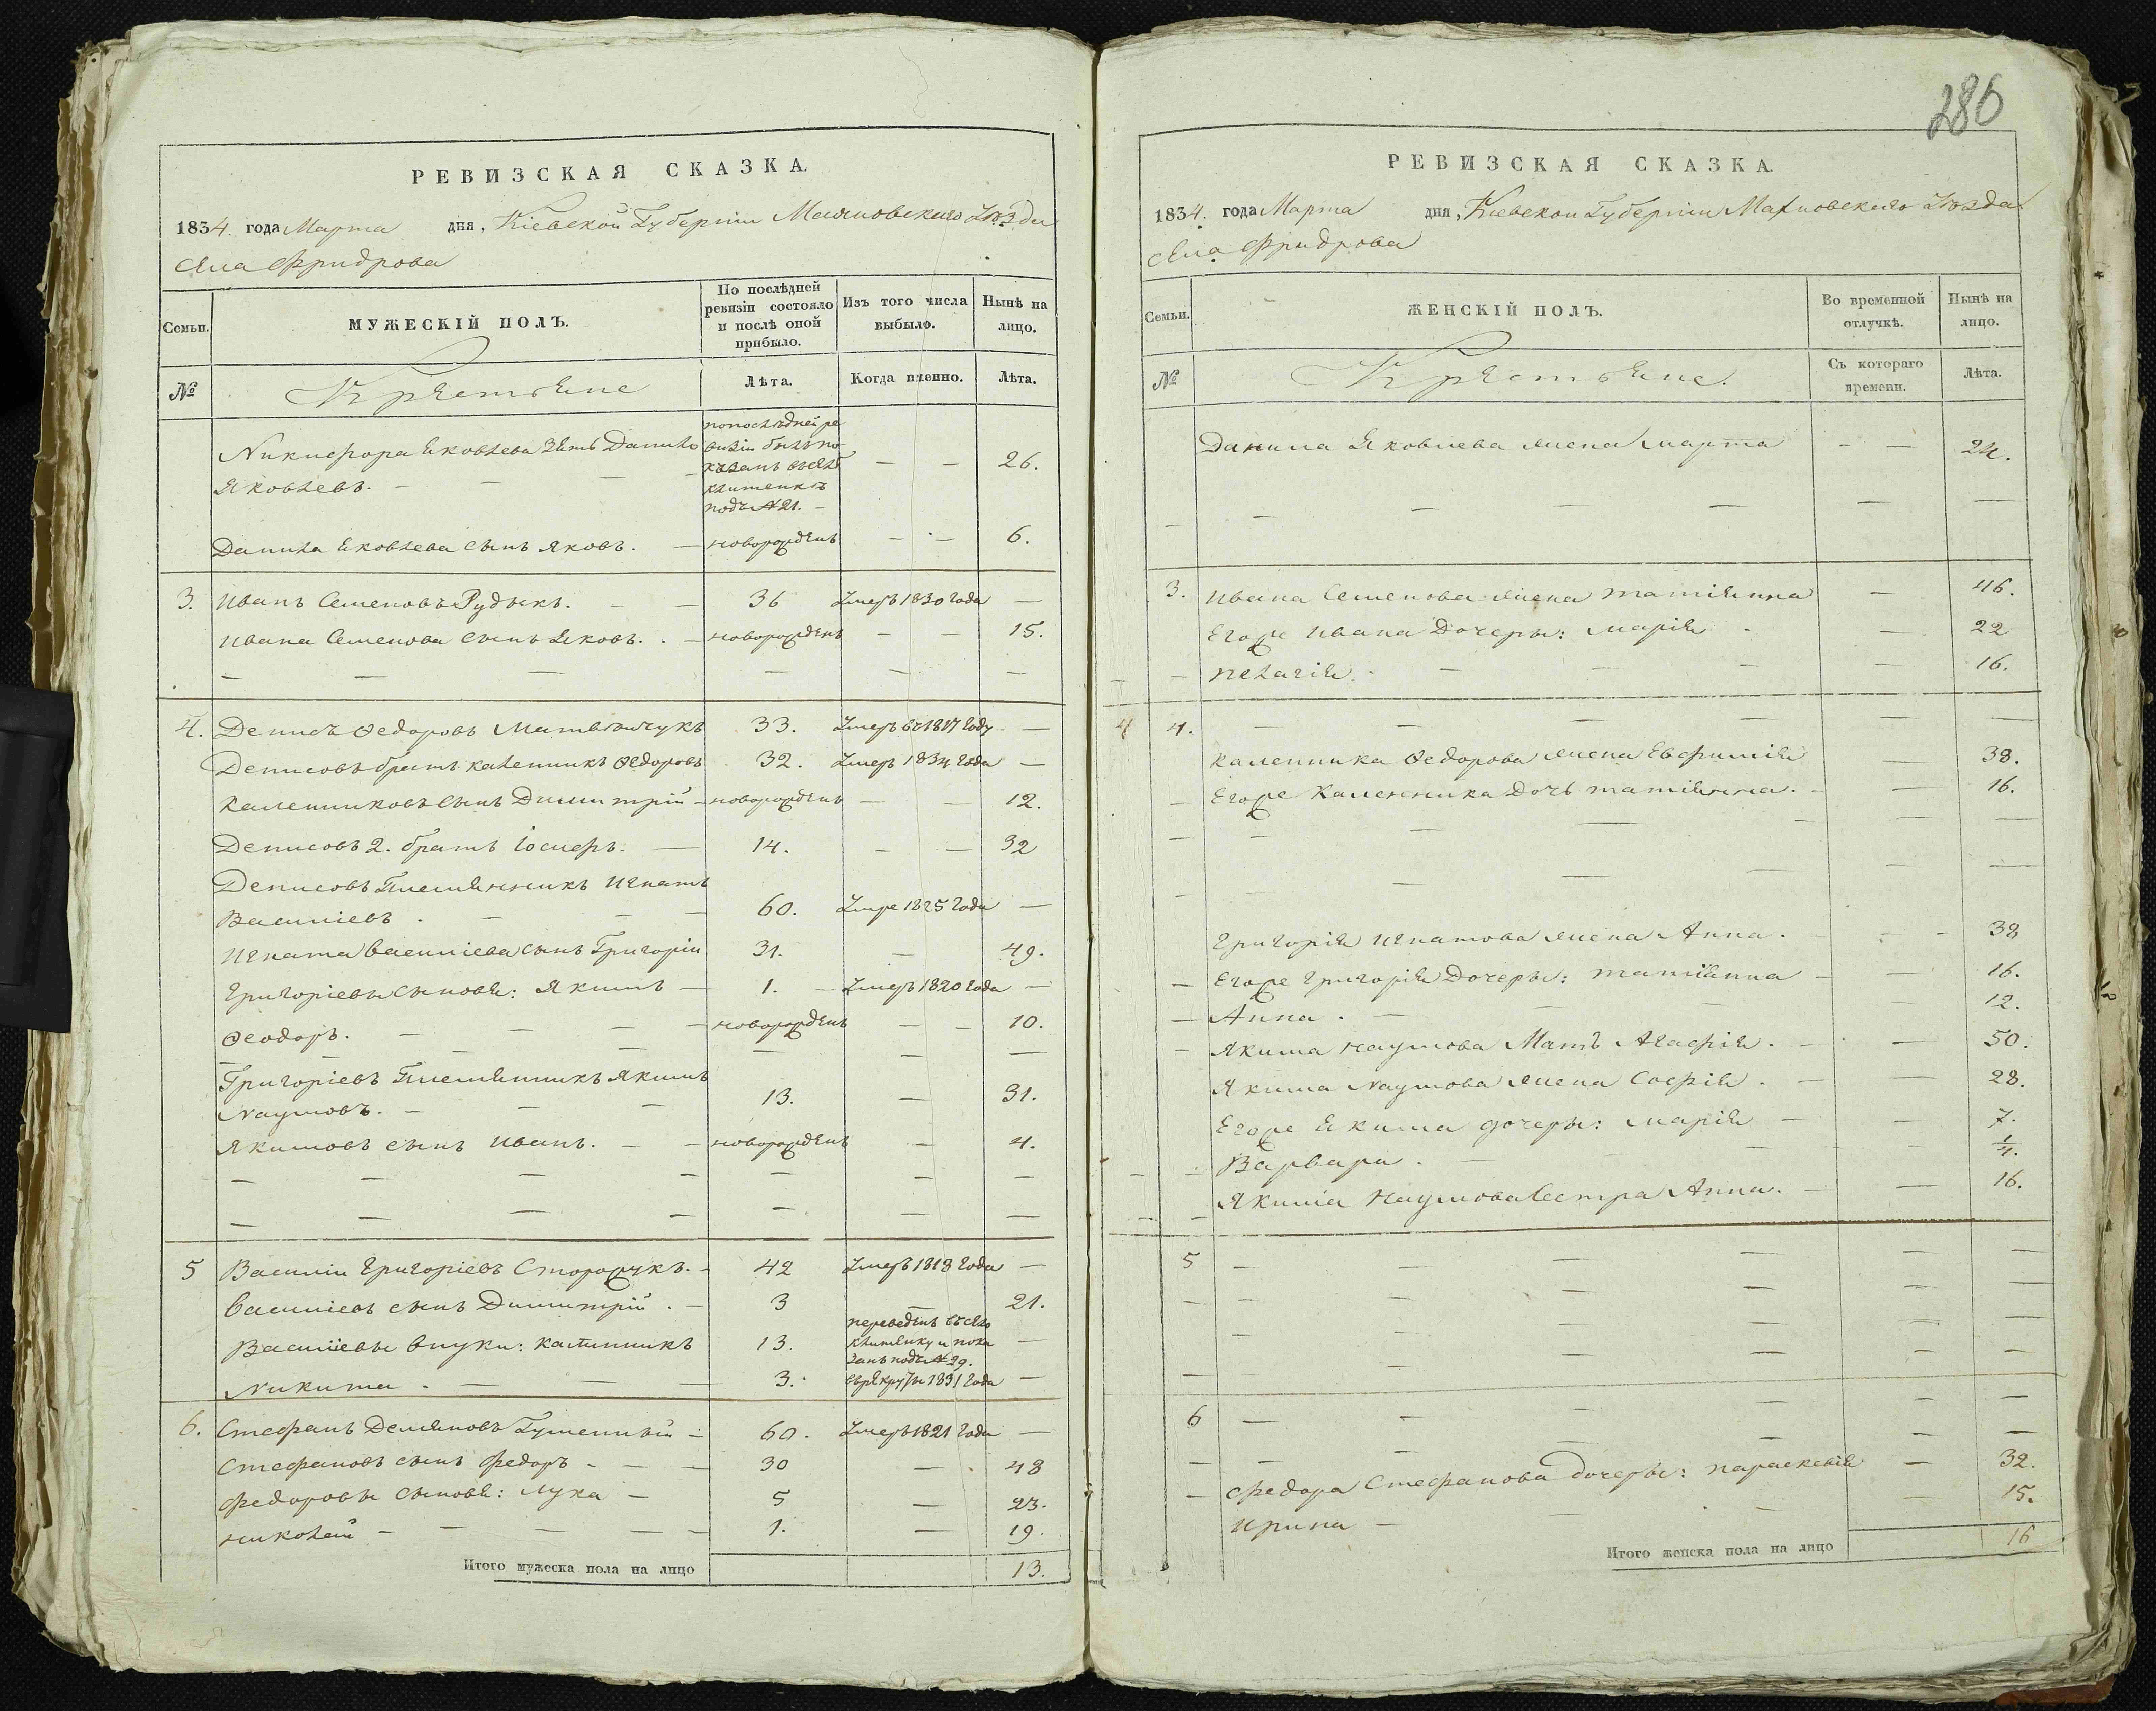 РЕВИЗСКАЯ СКАЗКА.
1834. года Марта дня, Кіевской Губерніи Махновскаго Уѣзда
Села Фридрова
Семьи. МУЖЕСКІЙ ПОЛЪ. По послѣдней ревизіи состояло и послѣ оной прибыло. Изъ того числа выбыло. Нынѣ на лицо.
№ Крестьяне Лѣта. Когда именно. Лѣта.
Никифора Яковлева зять Данило Яковлевъ. — по послѣдней ревизіи былъ показанъ в селѣ подъ № 21. — — 26.
Данила Яковлева сынъ Яковъ. — новорожденъ — — 6.
3. Иванъ Семеновъ Рудыкъ. — — 36 Умеръ 1830 года —
Ивана Семенова сынъ Яковъ. — новорожденъ — — 15.
4. Денисъ Ѳедоровъ Матвѣйчукъ 33. Умеръ въ 1817 году —
Денисовъ братъ Каленникъ Ѳедоровъ 32. Умеръ 1834 года —
Каленниковъ сынъ Димитрій — новорожденъ — — 12.
Денисовъ 2. братъ Іосифъ. — 14. — — 32
Денисовъ племянникъ Игнатъ
Василіевъ. — — — 60. Умре 1825 года —
Игната Василіева сынъ Григоріи 31. — 49.
Григоріевы сыновя: Якимъ — 1. — Умеръ 1820 года —
Ѳеодоръ. — — — новорожденъ — — 10.
Григоріевъ племянникъ Якимъ
Наумовъ. — — — 13. — 31.
Якимовъ сынъ Иванъ. — — новорожденъ — 4.
5 Василіи Григоріевъ Сторожукъ. — 42 Умеръ 1818 года —
Василіевъ сынъ Димитрій. — 3 — 21.
Василіевы внуки: Калинникъ 13. переведенъ въ село и показанъ подъ № 29. —
Никита. — — — 3. въ рекруты 1831 года —
6. Стефанъ Демяновъ Гуменный — 60. Умеръ 1821 года —
Стефановъ сынъ Федоръ — — — 30 — 48
Федоровы сыновя: Лука — 5 — 23.
Николай — — — — 1. — 19.
Итого мужеска пола на лицо 13.
286
РЕВИЗСКАЯ СКАЗКА.
1834. года Марта дня, Кіевской Губерніи Махновскаго Уѣзда
Села Фридрова
Семьи. ЖЕНСКІЙ ПОЛЪ. Во временной отлучкѣ. Нынѣ на лицо.
№ Крестьяне. Съ котораго времени. Лѣта.
Данила Яковлева жена Марта — — 24.
3. Ивана Семенова жена Татіянна — 46.
Егоже Ивана дочеры: Марія — 22
Пелагія. — — — 16.
4 4. — — — — — —
Каленника Ѳедорова жена Евфимія — 38.
Егоже Каленника дочь Татіянна. — — 16.
Григорія Игнатова жена Анна. — — 38
Егоже Григорія дочеры: Татіянна — 16.
Анна. — — — 12.
Якима Наумова мать Агафія. — — 50.
Якима Наумова жена Софія. — — 28.
Егоже Якима дочеры: Марія — — 7.
Варвара. — — — 1/4.
Якима Наумова сестра Анна. — — 16.
5 — — — — —
6 — — — — —
Федора Стефанова дочеры: Параскевія — 32.
Ирина — — — 15.
Итого женска пола на лицо 16